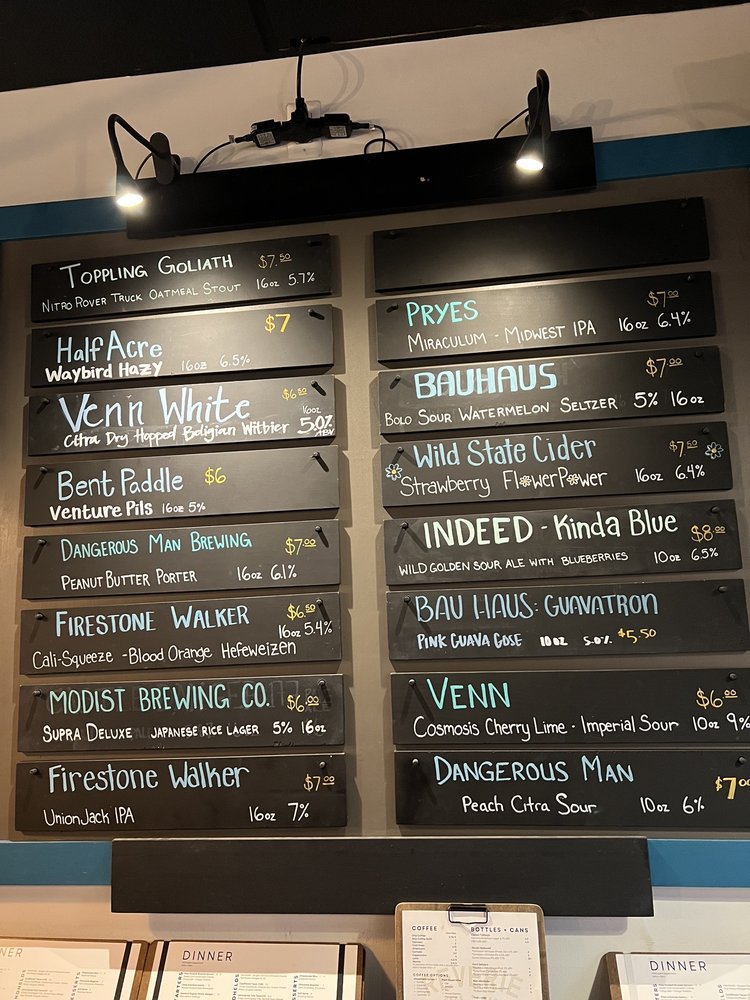 TOPPLING GOLIATH $7.50
NITRO ROVER TRUCK OATMEAL STOUT 16oz 5.7%
Half Acre $7
Waybird Hazy 16oz 6.5%
Venn White $6.50
Citra Dry Hopped Beligian Witbier 16oz 5.0% ABV
Bent Paddle $6
Venture Pils 16oz 5%
DANGEROUS MAN BREWING $7.00
PEANUT BUTTER PORTER 16oz 6.1%
FIRESTONE WALKER $6.50
Cali-Squeeze - Blood Orange Hefeweizen 16oz 5.4%
MODIST BREWING CO. $6.00
SUPRA DELUXE JAPANESE RICE LAGER 5% 16oz
Firestone Walker $7.00
Union Jack IPA 16oz 7%
PRYES $7.00
MIRACULUM - MIDWEST IPA 16oz 6.4%
BAUHAUS $7.00
BOLO SOUR WATERMELON SELTZER 5% 16oz
Wild State Cider $7.50
Strawberry FlowerPower 16oz 6.4%
INDEED - Kinda Blue $8.00
WILD GOLDEN SOUR ALE WITH BLUEBERRIES 10oz 6.5%
BAU HAUS: GUAVATRON
PINK GUAVA GOSE 10oz 5.0% $5.50
VENN $6.00
Cosmosis Cherry Lime - Imperial Sour 10oz 9%
DANGEROUS MAN $7.00
Peach Citra Sour 10oz 6%
COFFEE
BOTTLES + CANS
COFFEE OPTIONS
DINNER
DINNER